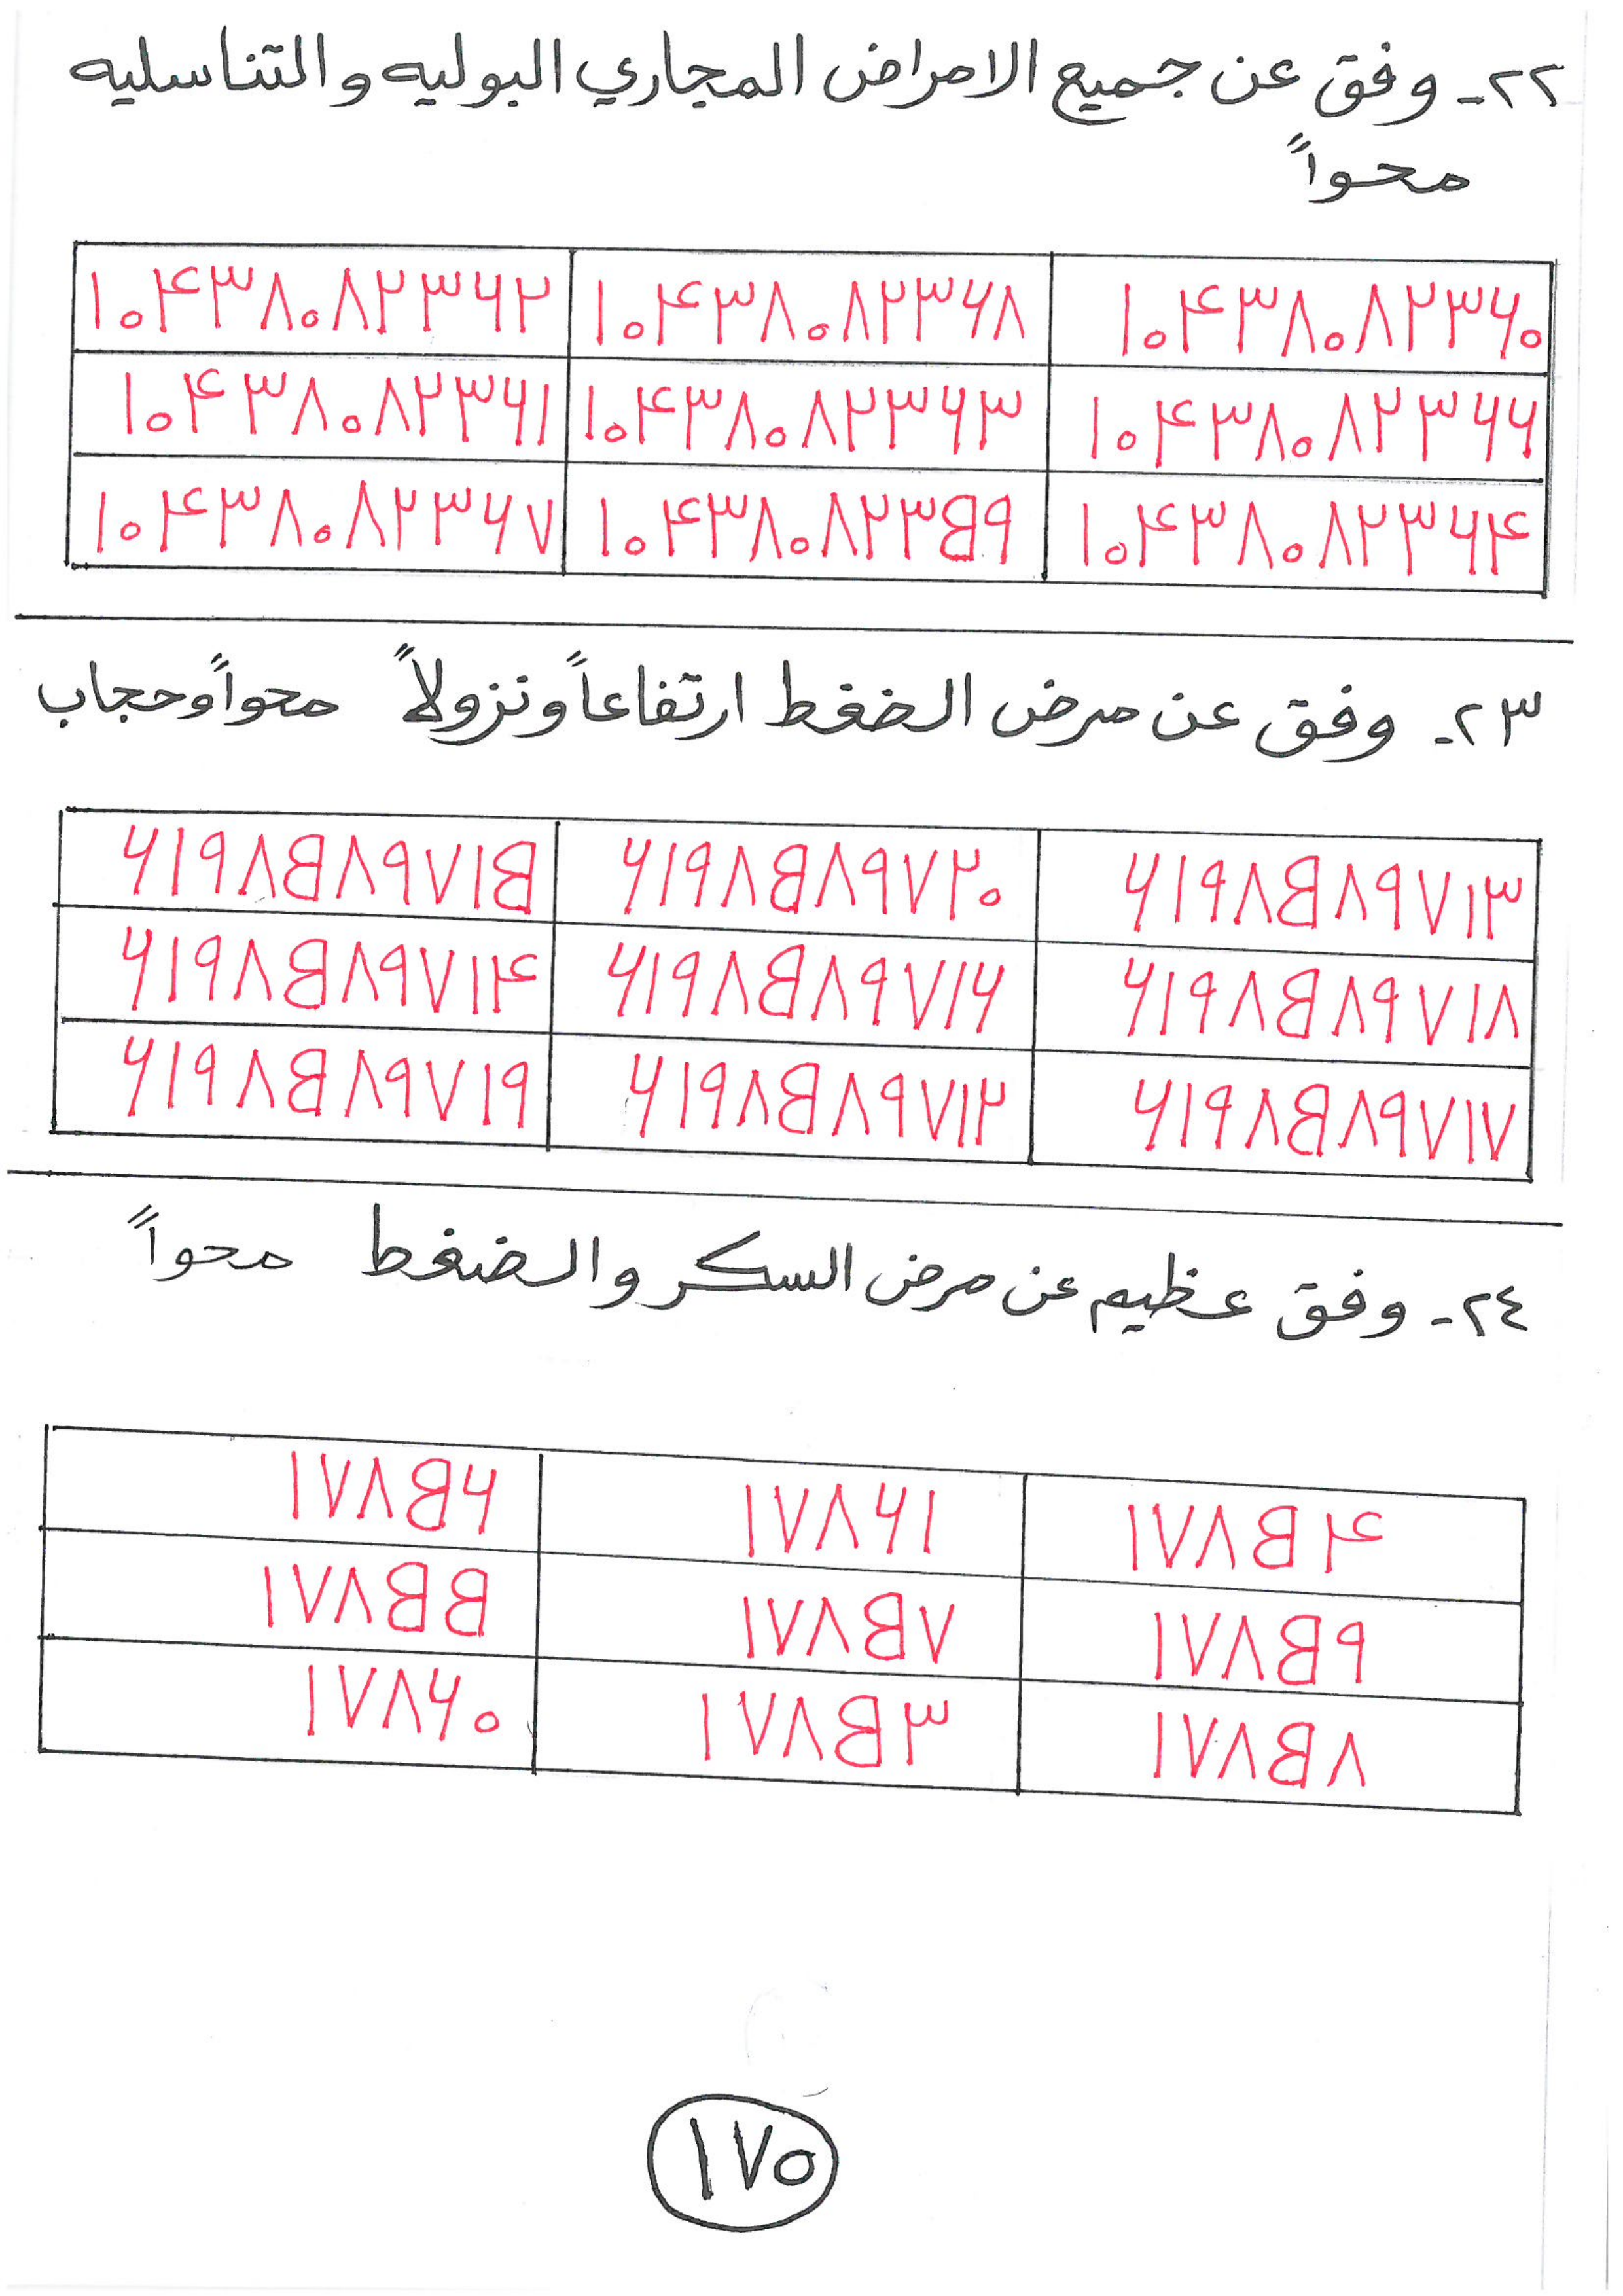 ٢٢- وفق عن جميع الامراض المجاري البوليه والتناسليه
محواً
١٠۴٣٨٠٨٢٣۶٠ ١٠۴٣٨٠٨٢٣۶٨ ١٠۴٣٨٠٨٢٣۶٢
١٠۴٣٨٠٨٢٣۶۶ ١٠۴٣٨٠٨٢٣۶٣ ١٠۴٣٨٠٨٢٣۶١
١٠۴٣٨٠٨٢٣۶۴ ١٠۴٣٨٠٨٢٣B٩ ١٠۴٣٨٠٨٢٣۶٧
٢٣- وفق عن مرض الضغط ارتفاعاً ونزولاً محواً وحجاب
۶١٩٨B٨٩٧١٣ ۶١٩٨B٨٩٧٢٠ ۶١٩٨B٨٩٧١B
۶١٩٨B٨٩٧١٨ ۶١٩٨B٨٩٧١۶ ۶١٩٨B٨٩٧١۴
۶١٩٨B٨٩٧١٧ ۶١٩٨B٨٩٧١٢ ۶١٩٨B٨٩٧١٩
٢٤- وفق عظيم عن مرض السكر والضغط محواً
١٧٨B۴ ١٧٨۶١ ١٧٨B۶
١٧٨B٩ ١٧٨B٧ ١٧٨BB
١٧٨B٨ ١٧٨B٣ ١٧٨۶٠
١٧٥